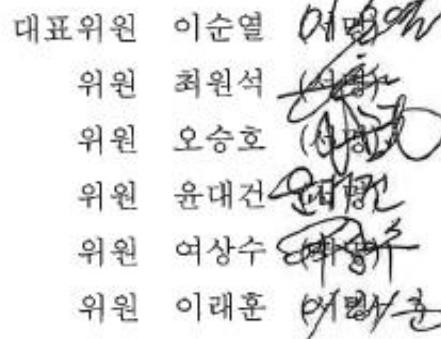 대표위원 이순열 (서명)
위원 최원석 (서명)
위원 오승호 (서명)
위원 윤대건 (서명)
위원 여상수 (서명)
위원 이래훈 (서명)